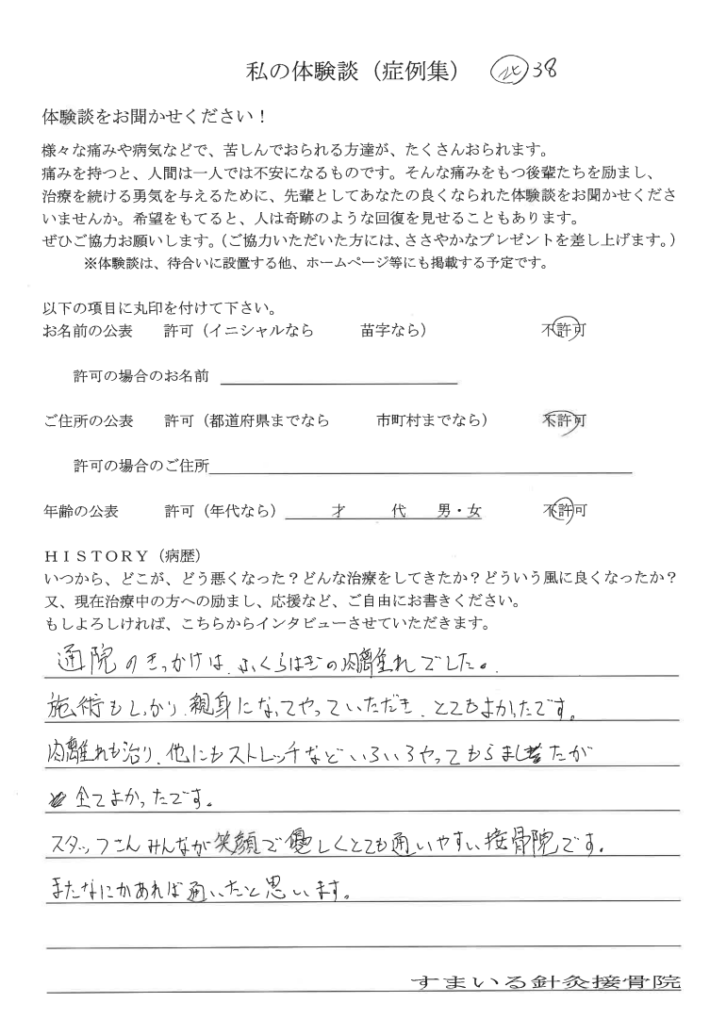 私の体験談（症例集） 北38
体験談をお聞かせください！
様々な痛みや病気などで、苦しんでおられる方達が、たくさんおられます。
痛みを持つと、人間は一人では不安になるものです。そんな痛みをもつ後輩たちを励まし、
治療を続ける勇気を与えるために、先輩としてあなたの良くなられた体験談をお聞かせくださ
いませんか。希望をもてると、人は奇跡のような回復を見せることもあります。
ぜひご協力お願いします。（ご協力いただいた方には、ささやかなプレゼントを差し上げます。）
※体験談は、待合いに設置する他、ホームページ等にも掲載する予定です。
以下の項目に丸印を付けて下さい。
お名前の公表　許可（イニシャルなら　苗字なら）　不許可
許可の場合のお名前
ご住所の公表　許可（都道府県までなら　市町村までなら）　不許可
許可の場合のご住所
年齢の公表　許可（年代なら）　才　代　男・女　不許可
ＨＩＳＴＯＲＹ（病歴）
いつから、どこが、どう悪くなった？どんな治療をしてきたか？どういう風に良くなったか？
又、現在治療中の方への励まし、応援など、ご自由にお書きください。
もしよろしければ、こちらからインタビューさせていただきます。
通院のきっかけは、ふくらはぎの肉離れでした。
施術もしっかり、親身になってやっていただき、とてもよかったです。
肉離れも治り、他にもストレッチなどいろいろやってもらましたが
全てよかったです。
スタッフさんみんなが笑顔で優しくとても通いやすい接骨院です。
またなにかあれば通いたと思います。
すまいる針灸接骨院